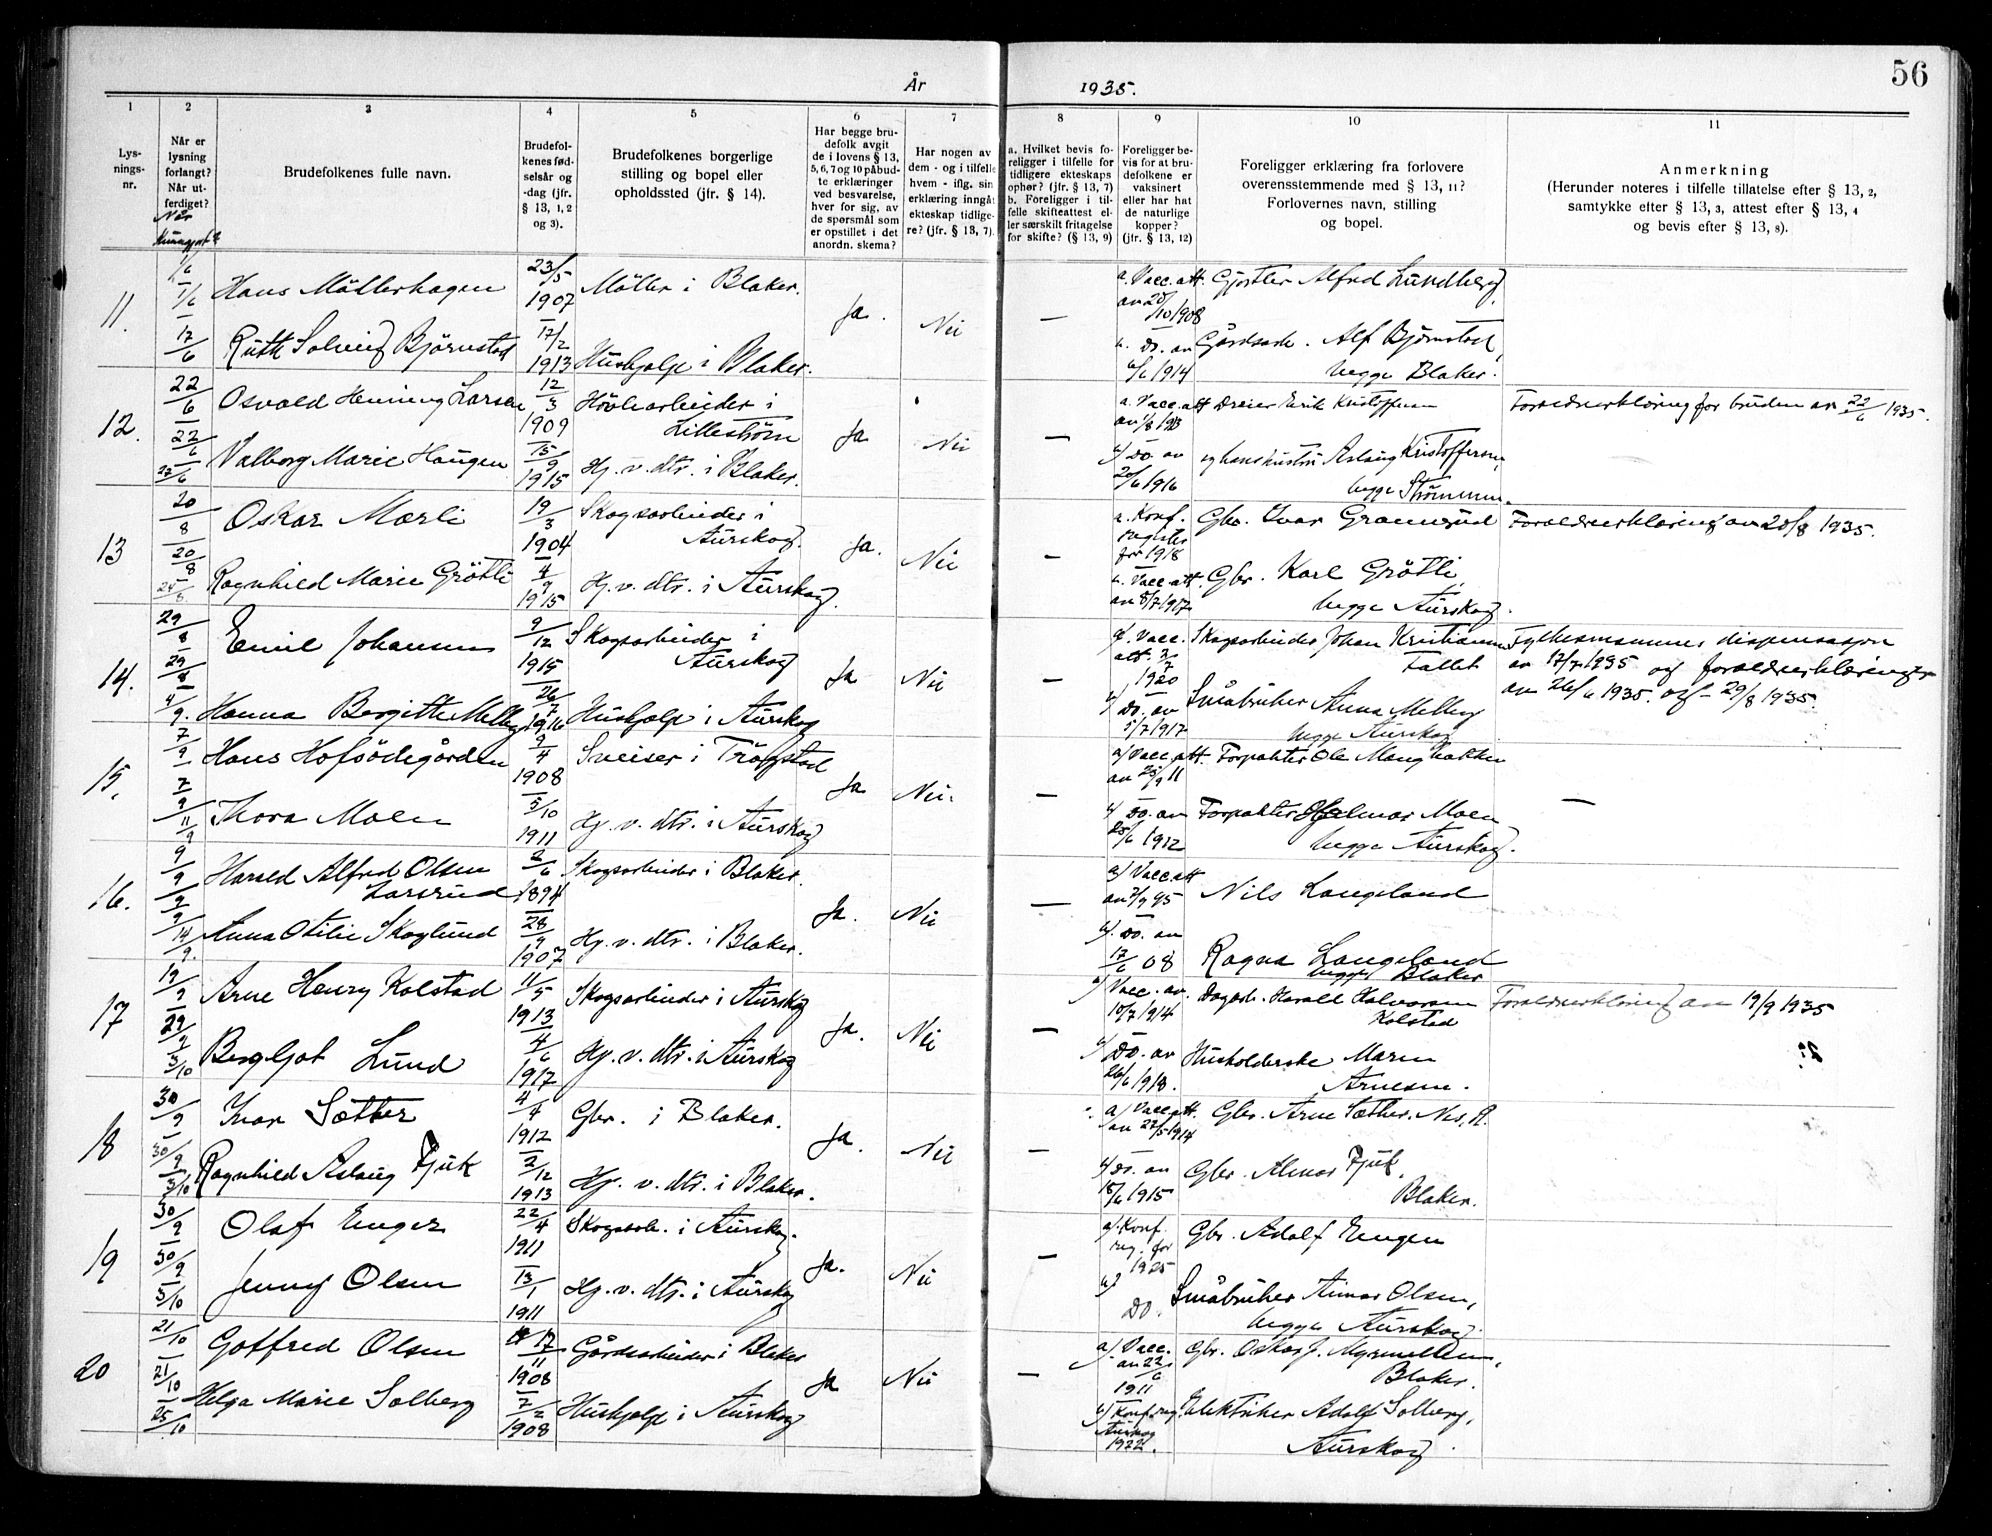 56
År
1935.
1
2
3
4
5
6
7
8
9
10
11
Lys-
nings-
nr.
Når er
lysning
forlangt?
Når ut-
ferdiget?
Når
Brudefolkenes fulle navn.
Brudefol-
kenes fød-
selsår og
-dag (jfr.
§ 13, 1, 2
og 3).
Brudefolkenes borgerlige
stilling og bopel eller
opholdssted (jfr. § 14).
Har begge bru-
defolk avgit
de i lovens § 13,
5, 6, 7 og 10 påbud-
te erklæringer
ved besvarelse,
hver for sig, av
de spørsmål som
er opstillet i det
anordn. skema?
Har nogen av
dem - og i tilfelle
hvem - iflg. sin
erklæring inngåt
ekteskap tidlige-
re? (jfr. § 13, 7).
a. Hvilket bevis fo-
religger i tilfelle for
tidligere ekteskaps
ophør? (jfr. § 13, 7)
b. Foreligger i til-
felle skifteattest el-
ler særskilt fritagelse
for skifte? (§ 13, 9)
Foreligger be-
vis for at bru-
defolkene er
vaksinert
eller har hat
de naturlige
kopper?
(jfr. § 13, 12)
Foreligger erklæring fra forlovere
overensstemmende med § 13, 11?
Forlovernes navn, stilling
og bopel.
Anmerkning
(Herunder noteres i tilfelle tillatelse efter § 13, 2,
samtykke efter § 13, 3, attest efter § 13, 4
og bevis efter § 13, 8).
11.
1/6
7/6
17/6
Hans Möllerhagen
23/5
1907
Möller i Blaker.
Ja.
Nei
—
a. Vacc.att.
av 20/10 1908
Gjørtler Alfred Lundberg,
Ruth Solveig Björnstad
17/2
1913
Hushjelp i Blaker.
b. Do. av
6/6 1914
Gårdsarb. Alf Bjørnstad,
begge Blaker.
12.
22/6
22/6
27/6
Osvald Henning Larsen
12/3
1909
Høvlearbeider i
Lillestrøm
Ja
Nei
—
a. Vacc.att
av 1/8 1913
Dreier Erik Kristoffersen
Foreldreerklæring for bruden av 22/6 1935.
Valborg Marie Haugen
15/9
1915
Hj. v. dtr. i Blaker.
b) Do. av
20/6 1916
og hans hustru Aslaug Kristoffersen,
begge Strømmen.
13
20/8
20/8
25/8
Oskar Mærli
19/3
1904
Skogsarbeider i
Aurskog.
Ja.
Nei
—
a. Konf.
register
for 1918
Gbr. Ivar Gramsrud
Foreldreerklæring av 20/8 1935.
Ragnhild Marie Grøtli
4/9
1915
Hj. v. dtr. i Aurskog.
b. Vacc.att.
av 5/7 1917
Gbr. Karl Grøtli,
begge Aurskog.
14.
29/8
29/8
4/9.
Emil Johansen
9/12
1915
Skogsarbeider i
Aurskog
Ja
Nei
—
a). Vacc.
att. 3/7
1920
Skogsarbeider Johan Kristiansen
Fallet
Fylkesmannens dispensasjon
av 17/7 1935 og foreldreerklæringer
av 26/6 1935 og 29/8 1935.
Hanna Bergitte Melby
26/7
1916
Hushjelp i Aurskog
b) Do. av
5/7 1917
Småbruker Anna Melby
begge Aurskog
15.
7/9
7/9
11/9
Hans Hofsödegården
9/4
1908
Sveiser i Trögstad
Ja
Nei.
—
a) Vacc.att.
av 25/9 11
Forpakter Ole Mangbakken
—
Thora Moen
5/10
1911
Hj. v. dtr. i Aurskog
b) Do. av
25/6 1912
Forpakter Hjelmar Moen
begge Aurskog.
16.
9/9
9/9
14/9.
Harald Alfred Olsen
Larsrud
2/6
1894
Skogsarbeider i Blaker.
Ja.
Nei
—
a) Vacc.att
av 7/9 95
Nils Langeland
Anna Otilie Skoglund
28/9
1907
Hj. v. dtr. i Blaker.
b). Do. av
17/6 08
Ragna Langeland
begge Blaker
17
19/9
29/9
3/10
Arne Henry Kolstad
11/5
1913
Skogsarbeider i Aurskog
Ja.
Nei
—
a) Vacc. av.
10/7 1914
Dagarb. Harald Halvorsen
Kolstad
Foreldreerklæring av 19/9 1935
Bergljot Lund
4/6
1917
Hj. v. dtr. i Aurskog
b) Do. av
26/6 1918.
Husholderske Maren
Arnesen.
18
30/9
30/9
3/10
Ivar Sæther
4/4
1912
Gbr. i Blaker.
Ja.
Nei
—
a) Vacc.att.
av 27/5 1914
Gbr. Arne Sæther. Nes, R.
Ragnhild Aslaug Fjuk
2/12
1913
Hj. v. dtr. i Blaker.
b) Do. av
18/6 1915
Gbr. Almar Fjuk,
Blaker.
19
30/9
30/9
5/10
Olaf Enger
22/4
1911
Skogsarb. i Aurskog.
Ja.
Nei
—
a). Konf.
reg. for
1925
Gbr. Adolf Engen
Jenny Olsen
13/1
1911
Hj. v. dtr. i Aurskog
b)
Do.
Småbruker Einar Olsen,
begge Aurskog.
20
21/10
21/10
25/10
Gotfred Olsen
17/11
1908
Gårdsarbeider i Blaker
Ja
Nei
—
a) Vacc.
av 22/6
1911
Gbr. Oskar J. Myrmellem,
Blaker.
Helga Marie Solberg
7/2
1908
Hushjelp i Aurskog
b) Konf.reg.
Aurskog
1922.
Elektriker Adolf Solberg,
Aurskog.